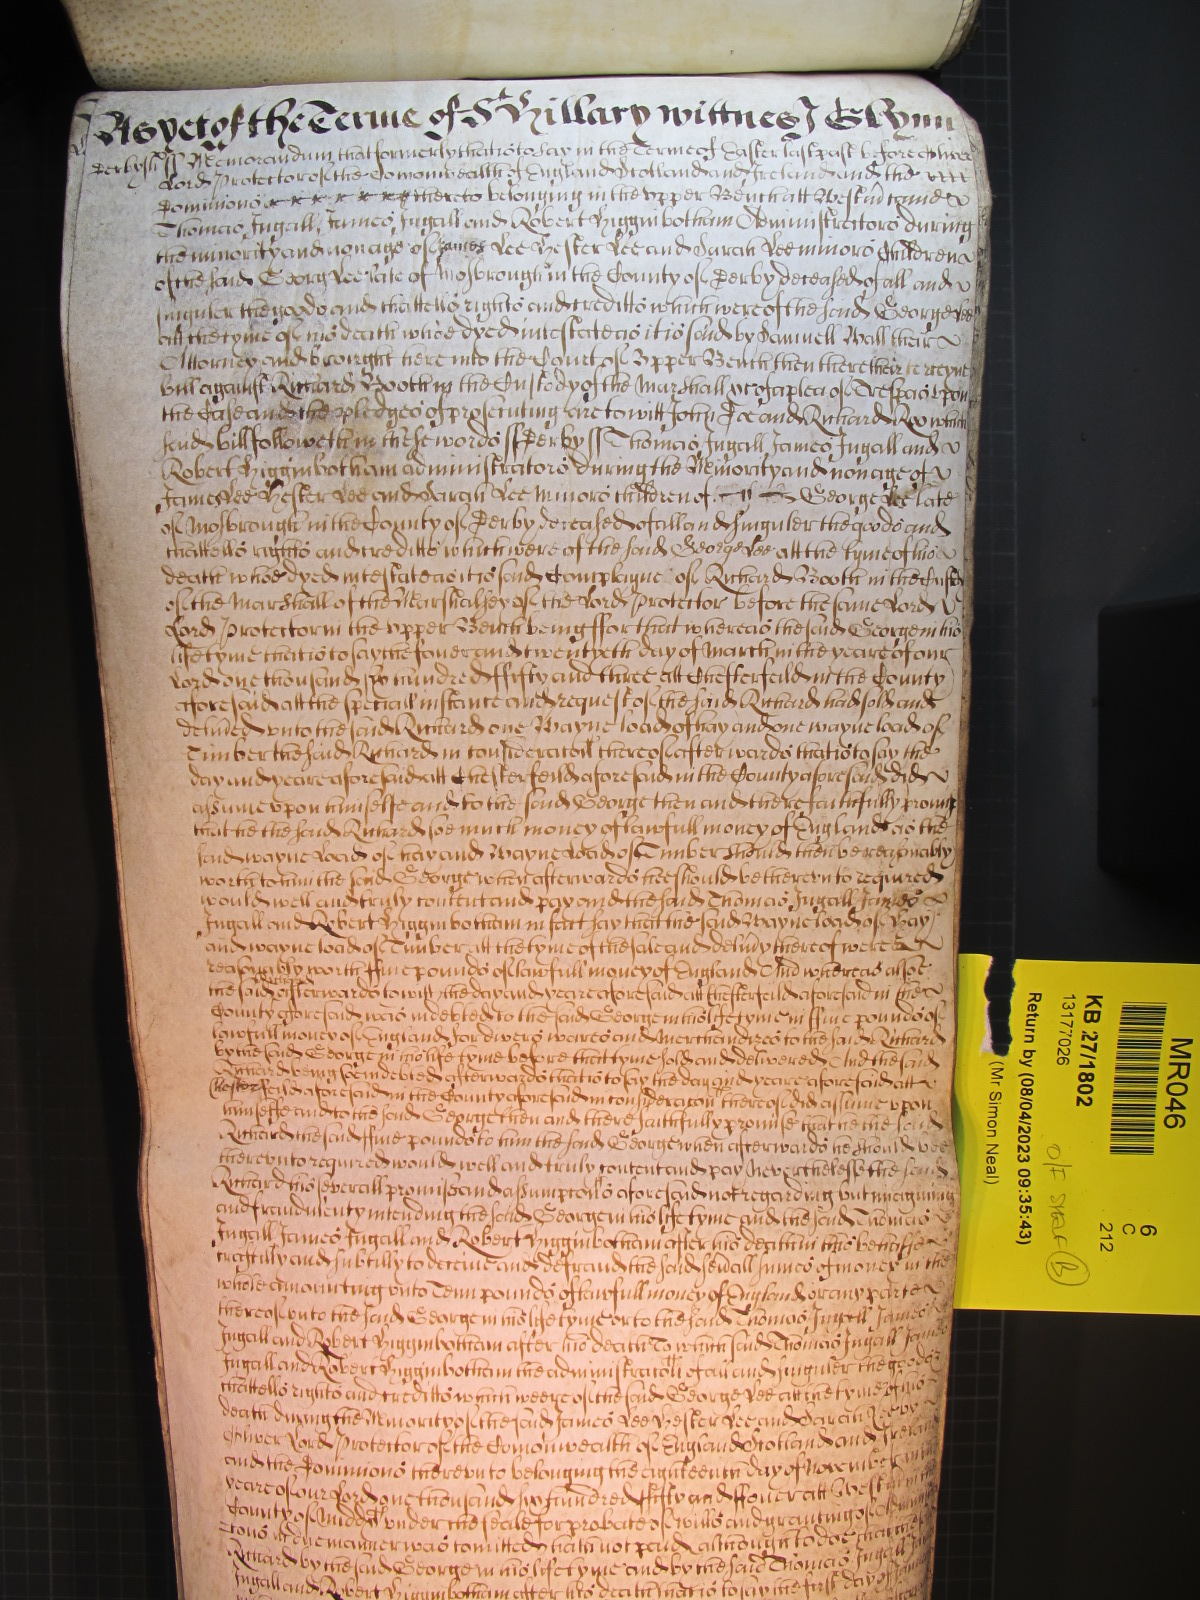 As yet of the Terme of St Hillary wittnes J Glynn
Derbysh ss Memorandum that formerly that is to say in the Terme of Easter last past before Oliver
Lord Protector of the Comonwealth of England Scotland and Ireland and the
Dominions thereto belonging in the upper Bench att Westm came
Thomas Ingall James Ingall and Robert Higginbotham Administrators during
the minority and nonage of James Lee Hester Lee and Sarah Lee minors Children
of the said George Lee late of Mosbrough in the County of Derby deceased of all and
singuler the goods and chattells rights and creditts which were of the said George Lee
att the tyme of his death whoe dyed intestate as it is said by Samuell Wall their
Attorney and brought here into the Court of Upper Bench then there their certeyne
bill against Richard Booth in the Custody of the Marshall &c of a plea of Trespas upon
the Case and the pledges of prosecuting are to witt John Doe and Richard Roo which
said bill followeth in these words ss Derby ss Thomas Ingall James Ingall and
Robert Higginbotham administrators during the Memority and nonage of
James Lee Hester Lee and Sarah Lee minors children of George Lee late
of Mosbrough in the County of Derby deceased of all and singuler the goods and
chattells rights and creditts which were of the said George Lee att the tyme of his
death whoe dyed intestate as it is said Complayne of Richard Booth in the Custody
of the Marshall of the Marshalsey of the Lord Protector before the same Lord
Lord Protector in the upper Bench being ffor that whereas the said George in his
life tyme that is to say the fower and twentyeth day of March in the yeare of our
Lord one thousand six hundred ffifty and three att Chesterfeild in the County
aforesaid att the speciall instance and request of the said Richard had sold and
deliverd unto the said Richard one Wayne load of hay and one wayne load of
Timber the said Richard in consideracon thereof afterwards that is to say the
day and yeare aforesaid att Chesterfeild aforesaid in the County aforesaid did
assume upon himselfe and to the said George then and there faithfully promise
that he the said Richard soe much money of lawfull money of England as the
said wayne Load of hay and Wayne Load of Timber should then be reasonably
worth to him the said George when afterwards hee should be thereunto required
would well and truly content and pay and the said Thomas Ingall James
Ingall and Robert Higginbotham in fact say that the said Wayne load of Hay
and wayne load of Timber att the tyme of the sale and delivry thereof were
reasonably worth ffive pounds of lawfull money of England And whereas alsoe
the said Richard afterwards to witt the day and yeare aforesaid att Chesterfeild aforesaid in the
County aforesaid was indebted to the said George in his life tyme in ffive pounds of
lawfull money of England for divers wares and Merchandizes to the said Richard
by the said George in his life tyme before that tyme sold and delivered And the said
Richard being soe indebted afterwards that is to say the day and yeare aforesaid att
Chesterfeild aforesaid in the County aforesaid in consideracon thereof did assume upon
himselfe and to the said George then and there faithfully promise that he the said
Richard the said ffive pounds to him the said George when afterwards he should bee
thereunto required would well and truly content and pay Neverthelesse the said
Richard his severall promises and assumptons aforesaid not regarding but imagining
and fraudulently intending the said George in his life tyme and the said Thomas
Ingall James Ingall and Robert Higginbotham after his death in this behalfe
craftily and subtilly to deceive and defraud the said sevrall sumes of money in the
whole amounting unto Tenn pounds of lawfull money of England or any parte
thereof unto the said George in his life tyme or to the said Thomas Ingall James
Ingall and Robert Higginbotham after his death To which said Thomas Ingall James
Ingall and Robert Higginbotham the administracon of all and singuler the goods
chattells rights and creditts which weere of the said George Lee att the tyme of his
death during the Memority of the said James Lee Hester Lee and Sarah Lee by
Oliver Lord Protector of the Comonwealth of England Scotland and Ireland
and the Dominions thereunto belonging the eighteenth day of November in the
yeare of our Lord one thousand six hundred ffifty and ffower att Westm in the
County of Midd under the seale for probate of wills and granting of Administra
cons in due manner was comitted hath not payd although to doe that the said
Richard by the said George in his life tyme and by the said Thomas Ingall James
Ingall and Robert Higginbotham after his death that is to say the first day of
MR046
6
C
212
KB 27/1802
13177026
Return by (08/04/2023 09:35:43)
(Mr Simon Neal)